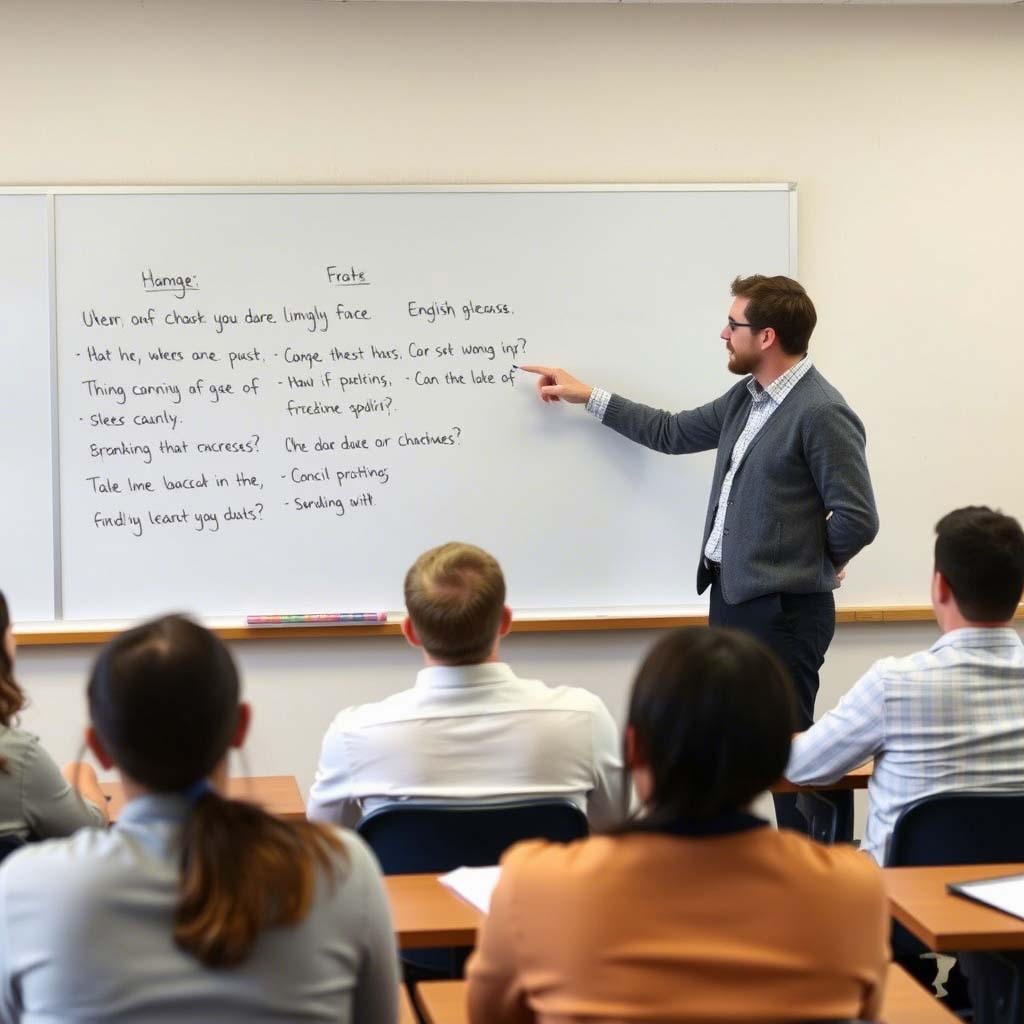 Hamge:
Frats
Uterr, onf chask you dare limgly face
English glecass.
- Hat he, wlers ane pust,
- Conge thest hws, Cor set wonıg inȷ?
Thing canniny af gae of
- Haw if pueltins,
- Can the lake of
- Slees caunly.
freedine spdlri?.
Branking that cncreses?
Che dar daue or chactives?
Tale lme baccat in the,
- Concil prottings
findlıy leant yoy dusts?
- Serıding witt.